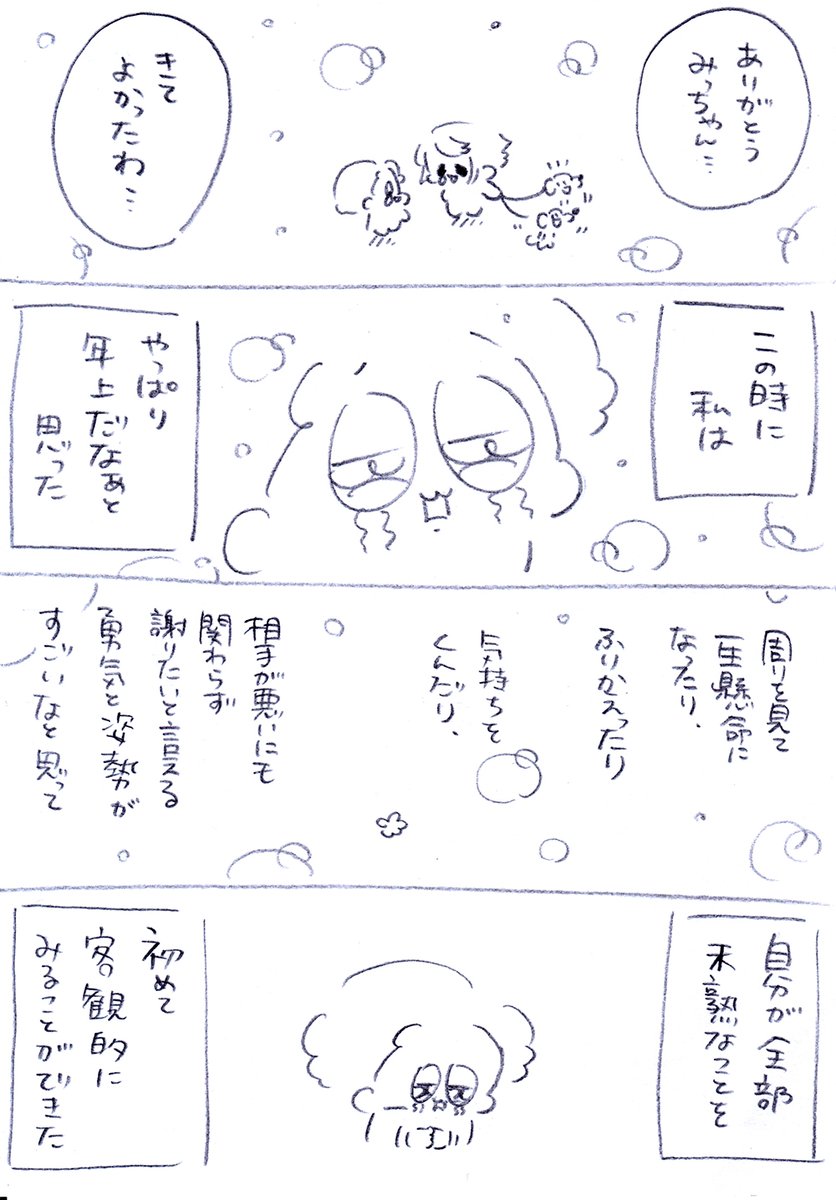 ありがとう
みっちゃん…
きて
よかったわ…
この時に
私は
やっぱり
年上だなぁと
思った
周りを見て
一生懸命に
なったり、
ふりかえったり
気持ちを
くんだり、
相手が悪いにも
関わらず
謝りたいと言える
勇気と姿勢が
すごいなと思って
自分が全部
未熟なことを
初めて
客観的に
みることができた